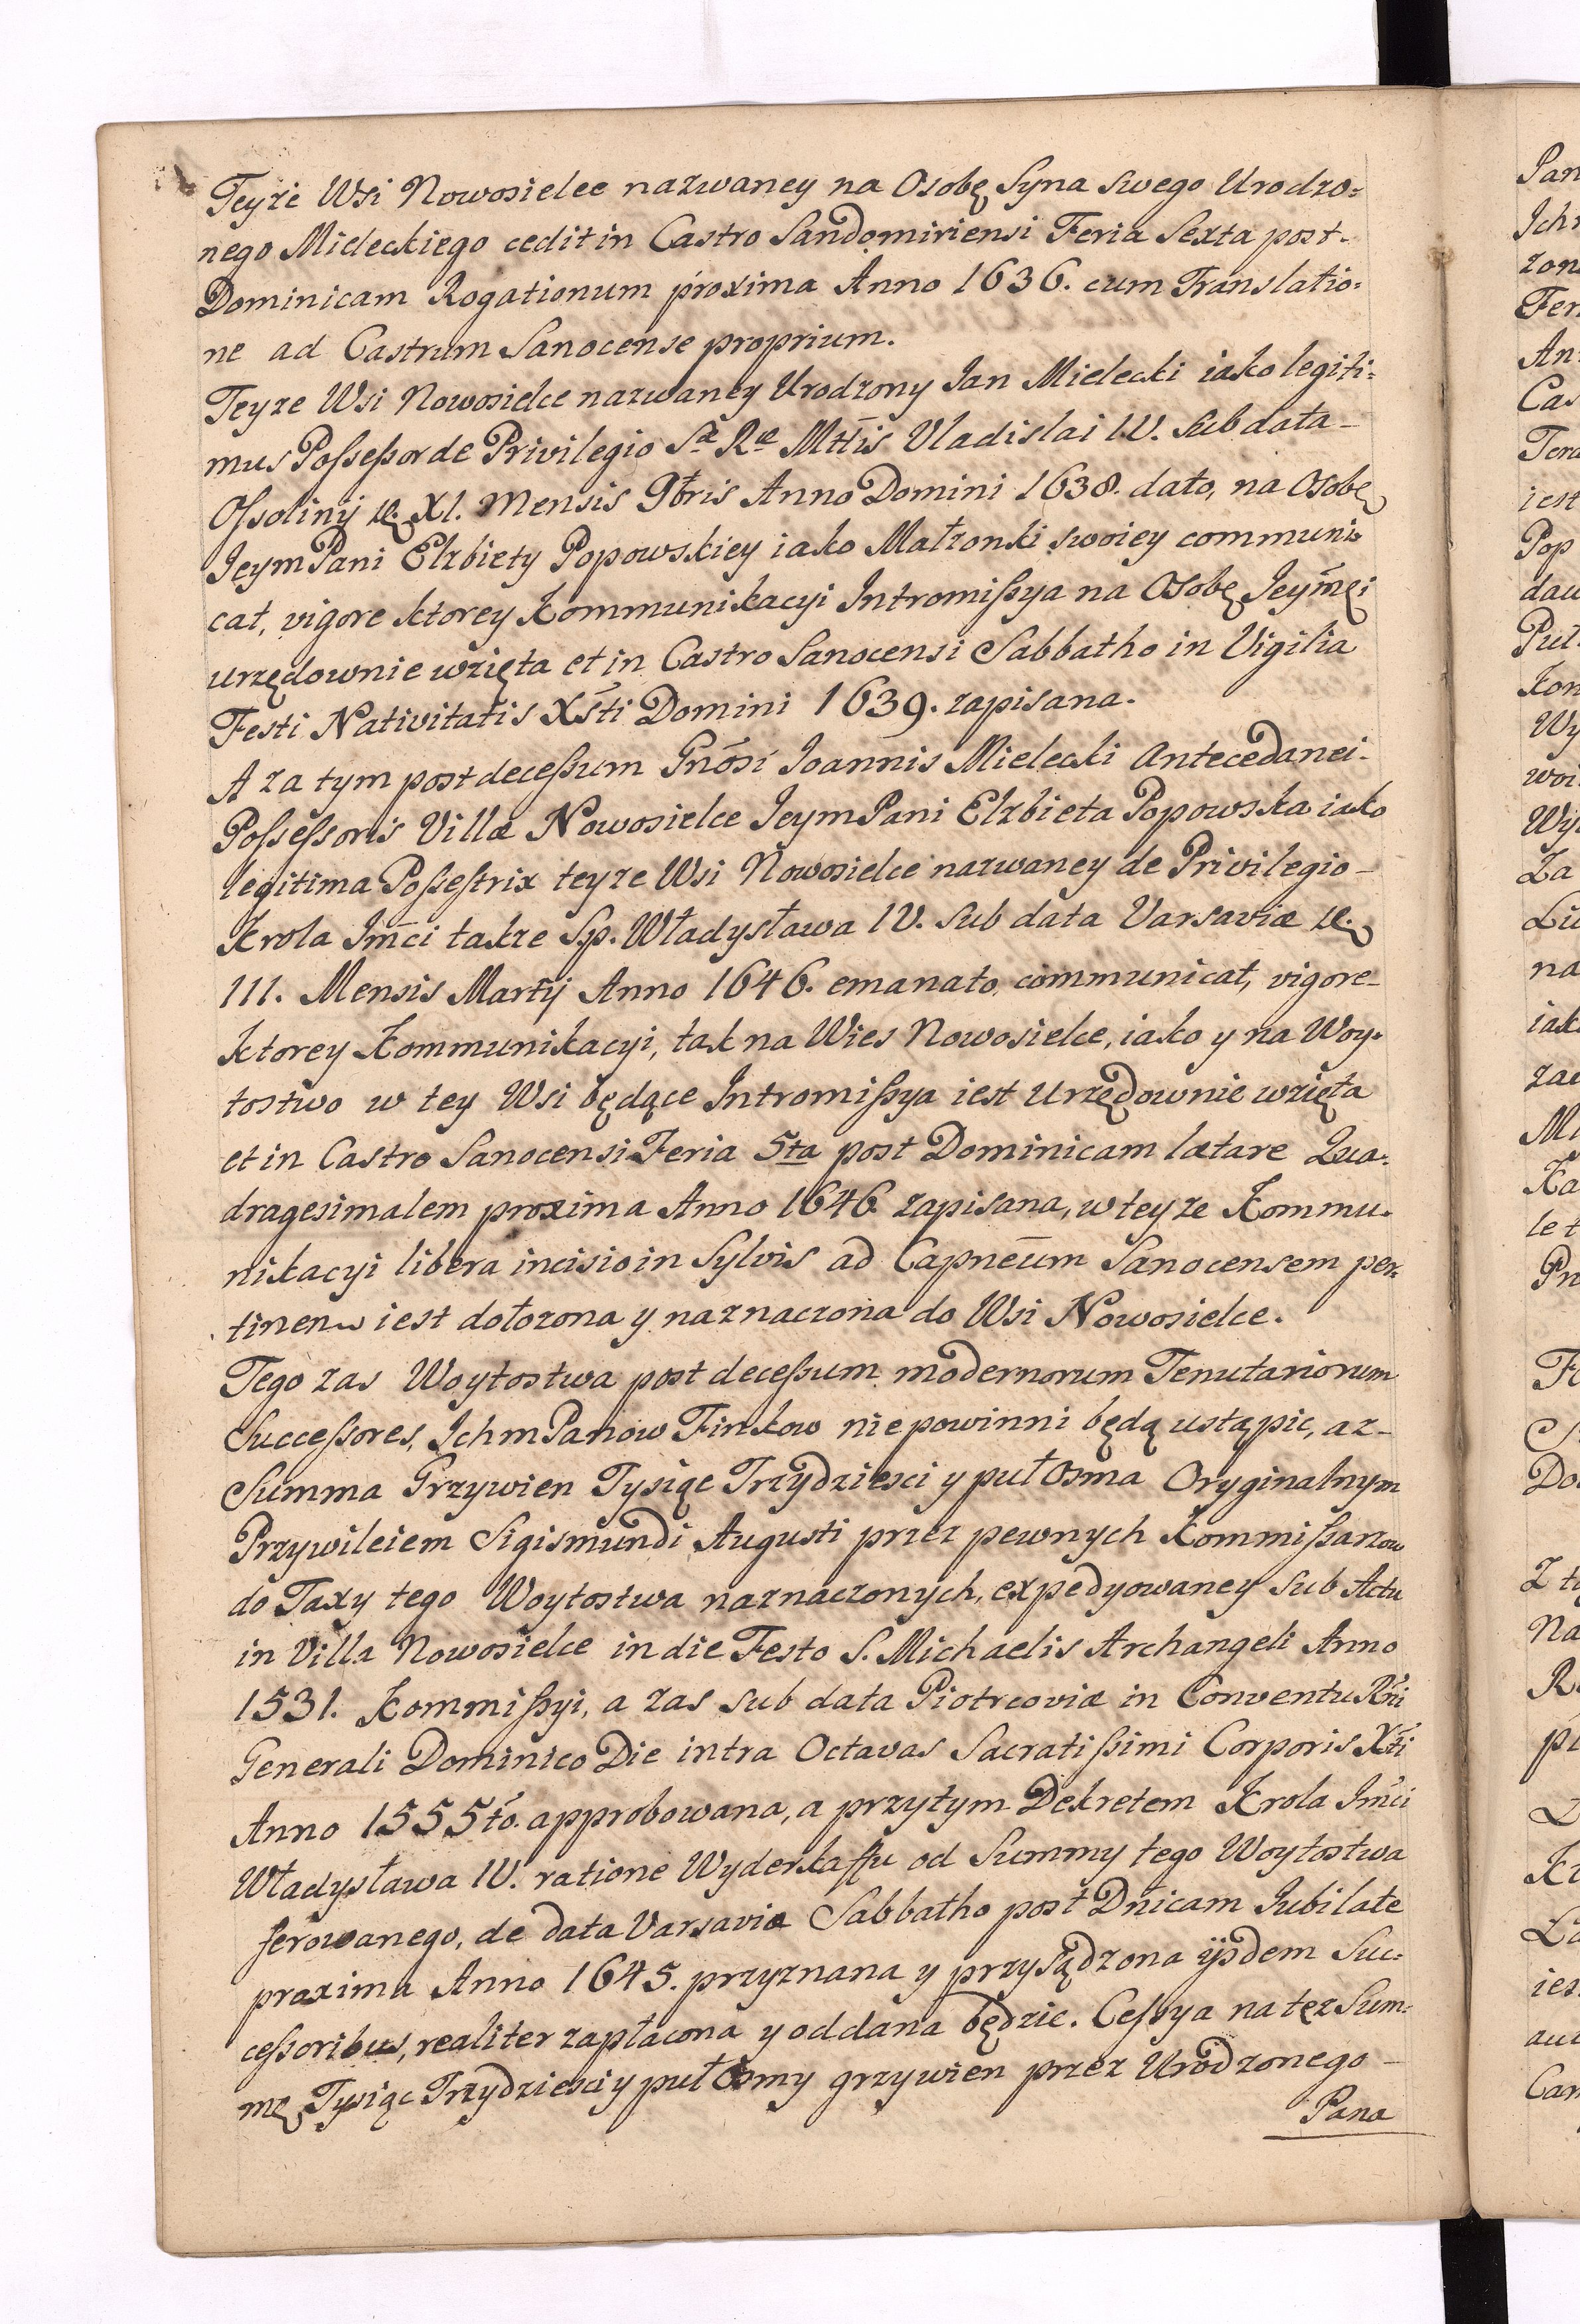 Teyże Wsi Nowosielce nazwaney na Osobę Syna swego Urodzo=
nego Mieleckiego cedit in Castro Sandomiriensi Feria Sexta post-
Dominicam Rogationum proxima Anno 1636. cum Translatio=
ne ad Castrum Sanocense proprium.
Teyze Wsi Nowosielce nazwaney Urodzony Jan Mielecki iako legiti=
mus Possessor de Privilegio Sæ Ræ Mttis Vladislai IV. Sub data-
Ossolinÿ XI. Mensis 9bris Anno Domini 1638. dato, na Osobę
JeymPani Elzbiety Popowskiey iako Małzonki swoiey communi=
cat, vigore ktorey Kommunikacyi Intromissya na Osobę Jeymci
urzędownie wzięta et in Castro Sanocensi Sabbatho in Vigilia
Festi Nativitatis Xsti Domini 1639. zapisana.
A za tym post decessum Gnosi Joannis Mielecki Antecedanei-
Possessoris Villæ Nowosielce JeymPani Elzbieta Popowska iako
legitima Possestrix teyze Wsi Nowosielce nazwaney de Privilegio-
Krola Jmci takze Sp. Władysława IV. Sub data Varsaviæ
III. Mensis Martÿ Anno 1646. emanato, communicat, vigore-
ktorey Kommunikacyi, tak na Wies Nowosielce, iako y na Woy=
tostwo w tey Wsi będące Intromissya iest Urzędownie wzięta
et in Castro Sanocensi Feria 5ta post Dominicam lætare Qua=
dragesimalem proxima Anno 1646 zapisana, w teyze Kommu=
nikacyi libera incisio in Sylvis ad Capneum Sanocensem per=
tinen iest dołozona y naznaczona do Wsi Nowosielce.
Tego zas Woytostwa post decessum modernorum Tenutariorum
Successores, JchmPanow Finkow nie powinni będą ustąpic, az-
Summa Grzywien Tysiąc Trzydziesci y puł Osma Oryginalnym
Przywileiem Sigismundi Augusti przez pewnych Kommissarzow
do Taxy tego Woytostwa naznaczonych, expedyowaney Sub Actu
in Villa Nowosielce in die Festo S. Michaelis Archangeli Anno
1531. Kommissyi, a zas sub data Piotrcoviæ in Conventu Rni
Generali Dominico Die intra Octavas Sacratissimi Corporis Xsti
Anno 1555to. approbowana, a przytym Dekretem Krola Jmci
Władysława IV. ratione Wyderkaffu od Summy tego Woytostwa
ferowanego, de data Varsaviæ Sabbatho post Dnicam Jubilate
proxima Anno 1645. przyznana y przysądzona ijsdem Suc=
cessoribus, realiter zapłacona y oddana będzie. Cessya na tęz Sum=
mę Tysiąc Trzydziesci y puł Osmy grzywien przez Urodzonego-
Pana